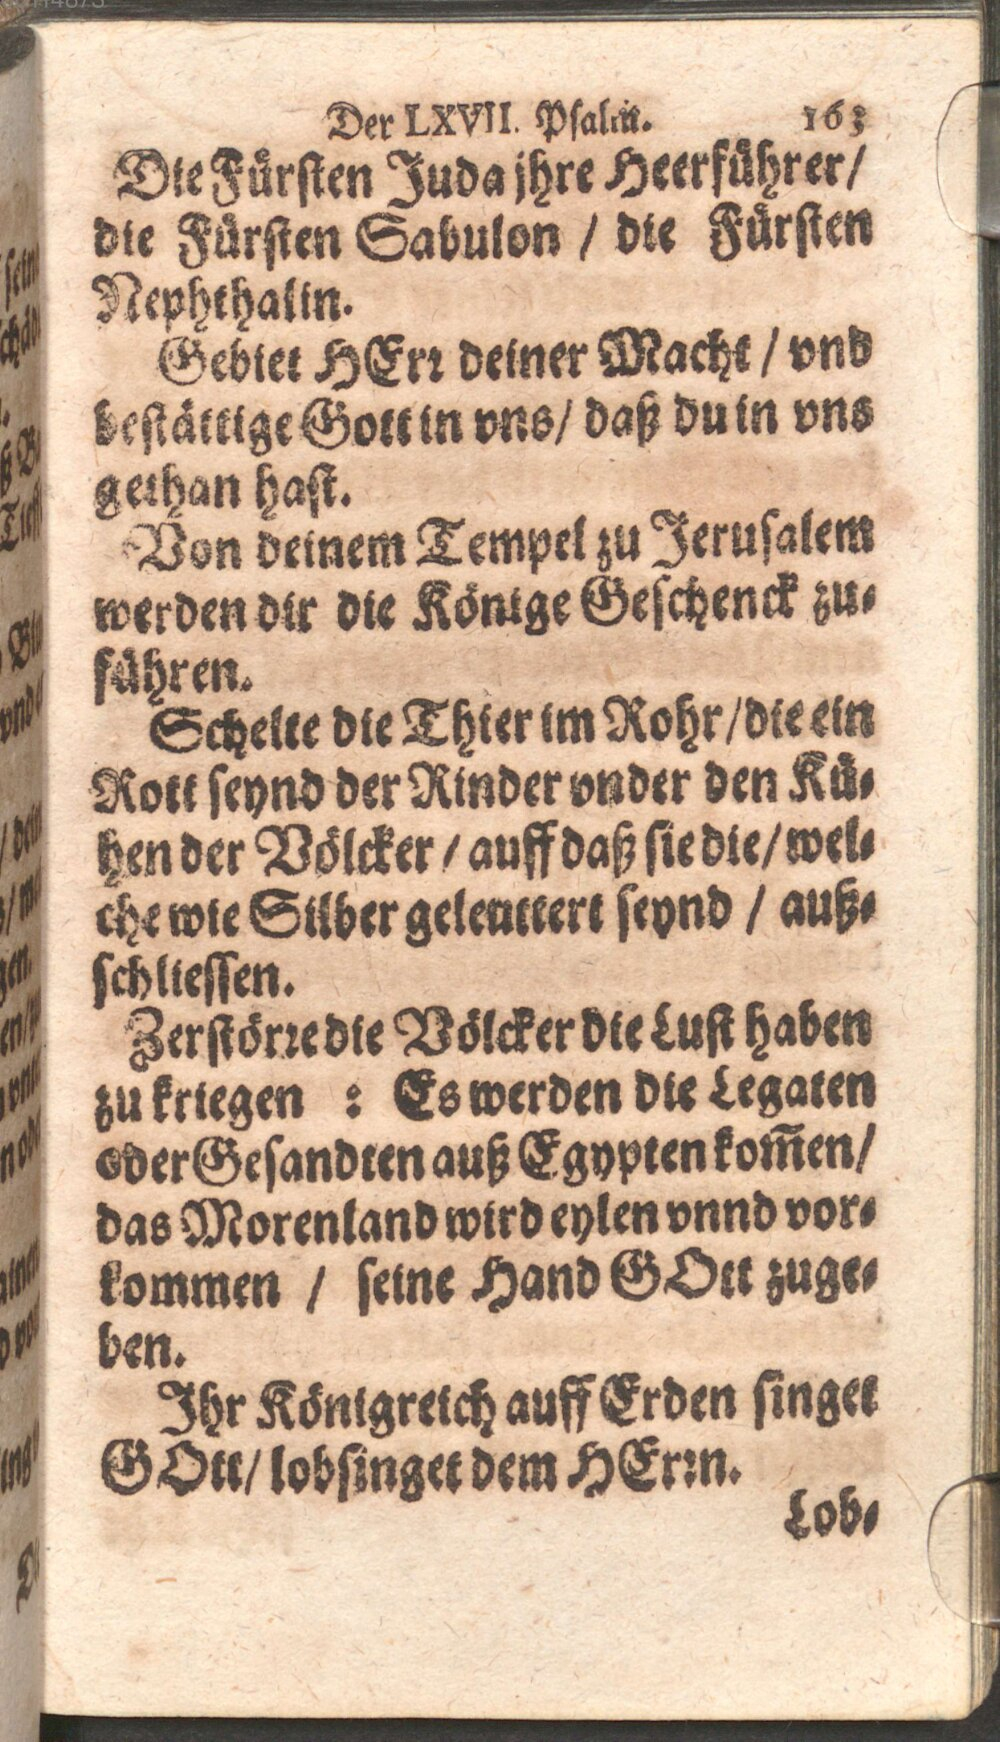 Der LXVII. Psalm. 163
Die Fürsten Juda jhre Heerführer/
die Fürsten Sabulon / die Fürsten
Nephthalin.
Gebiet HErr deiner Macht / vnd
bestättige Gott in vns/ daß du in vns
gethan hast.
Von deinem Tempel zu Jerusalem
werden dir die Könige Geschenck zu⸗
führen.
Schelte die Thier im Rohr/ die ein
Rott seynd der Rinder vnder den Kü⸗
hen der Völcker / auff daß sie die/ wel⸗
che wie Silber geleuttert seynd / auß⸗
schliessen.
Zerstörre die Völcker die Lust haben
zu kriegen : Es werden die Legaten
oder Gesandten auß Egypten kom̃en/
das Morenland wird eylen vnnd vor⸗
kommen / seine Hand GOtt zuge⸗
ben.
Ihr Königreich auff Erden singet
GOtt/ lobsinget dem HErrn.
Lob⸗